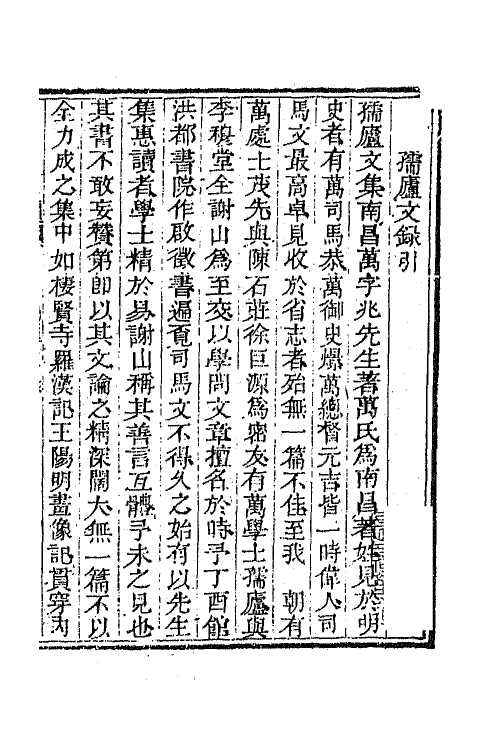 孺廬文錄引
孺廬文集南昌萬字兆先生著萬氏為南昌著姓見於明
史者有萬司馬恭萬御史燝萬總督元吉皆一時偉人司
馬文最高卓見收於省志者殆無一篇不佳至我 朝有
萬處士茂先與陳石莊徐巨源為密友有萬學士孺廬與
李穆堂全謝山為至交以學問文章擅名於時予丁酉館
洪都書院作啟徵書遍覓司馬文不得久之始有以先生
集惠讀者學士精於易謝山稱其善言互體予未之見也
其書不敢妄贊第即以其文論之精深闊大無一篇不以
全力成之集中如棲賢寺羅漢記王陽明畫像記貫穿內